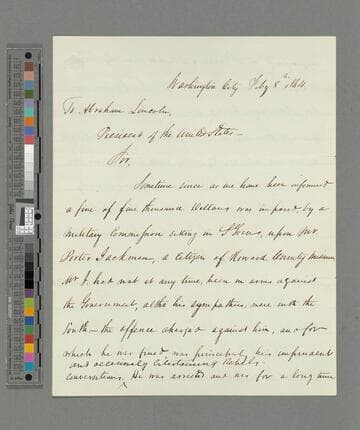 Washington City Feby 8th 1864
To Abraham Lincoln,
President of the United States —
Sir,
Sometime since as we have been informed
a fine of five thousand dollars was imposed, by a
Military Commission sitting in St Louis, upon Mr
Porter Jackman, a citizen of Howard County Missouri
Mr J. had not at any time, been in arms against
the Government, altho his sympathies, were with the
South — the offence charged against him, and for
which he was fined was principally his imprudent
and occasionally entertaining Rebels
conversations, He was arrested and was for a long time